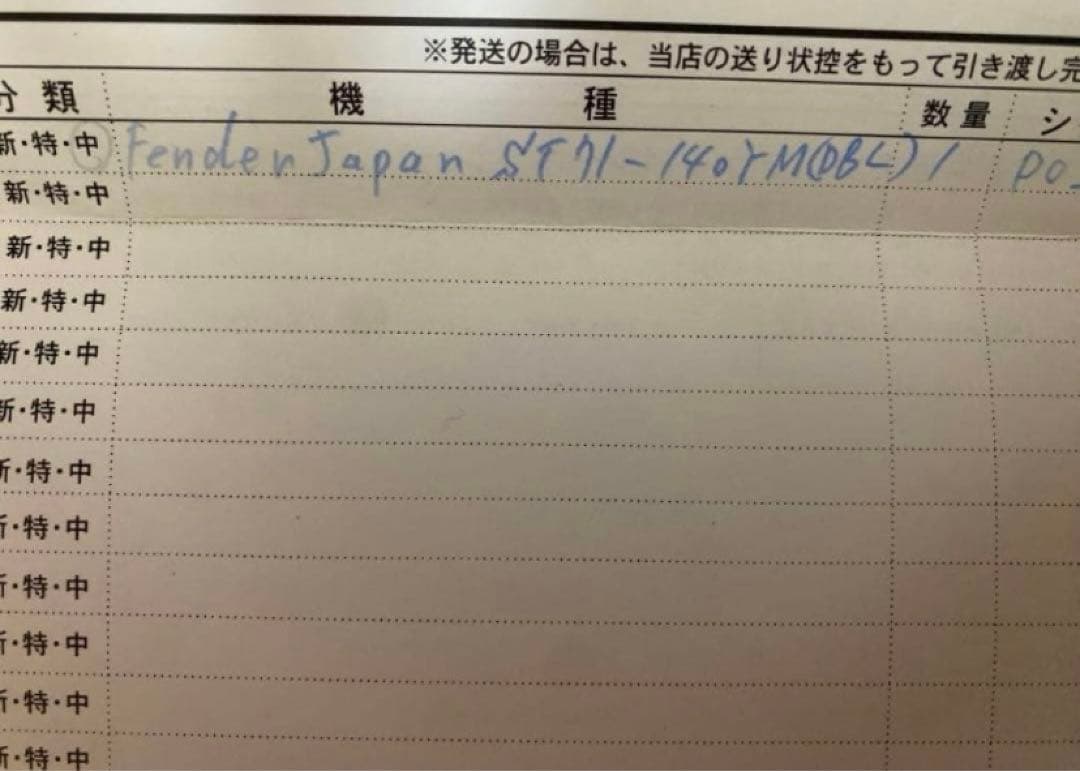 ※発送の場合は、当店の送り状控をもって引き渡し完
分 類 機 種 数 量 シ
新・特・中 Fender Japan ST71-140YM(OBL) 1 P0
新・特・中
新・特・中
新・特・中
新・特・中
新・特・中
新・特・中
新・特・中
新・特・中
新・特・中
新・特・中
新・特・中